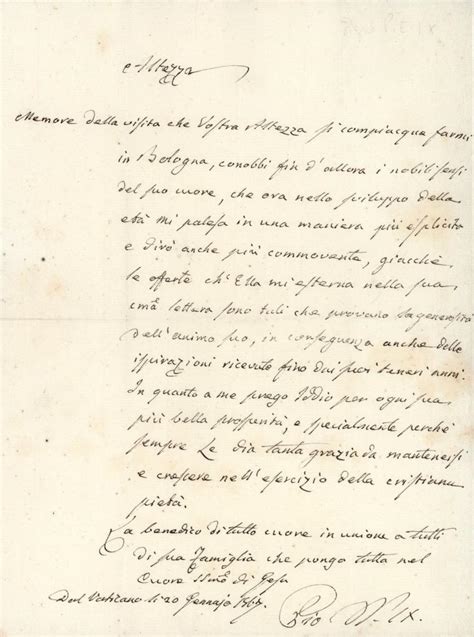 Papa Pio IX
Altezza
Memore della visita che Vostra Altezza si compiacque farmi
in Bologna, conobbi fin d'allora i nobili sensi
del suo cuore, che ora nello sviluppo della
età mi palesa in una maniera più esplicita
e dirò anche più commovente, giacchè
le offerte ch'Ella mi esterna nella sua
cma lettera sono tali che provano la generosità
dell'animo suo, in conseguenza anche delle
ispirazioni ricevute fino dai suoi teneri anni.
In quanto a me prego Iddio per ogni sua
più bella prosperità, e specialmente perchè
sempre Le dia tanta grazia da mantenersi
e crescere nell'esercizio della cristiana
pietà.
La benedico di tutto cuore in unione a tutti
di sua Famiglia che pongo tutta nel
Cuore SSmo di Gesù
Dal Vaticano li 20 Gennajo 1867
Pio PP. IX.